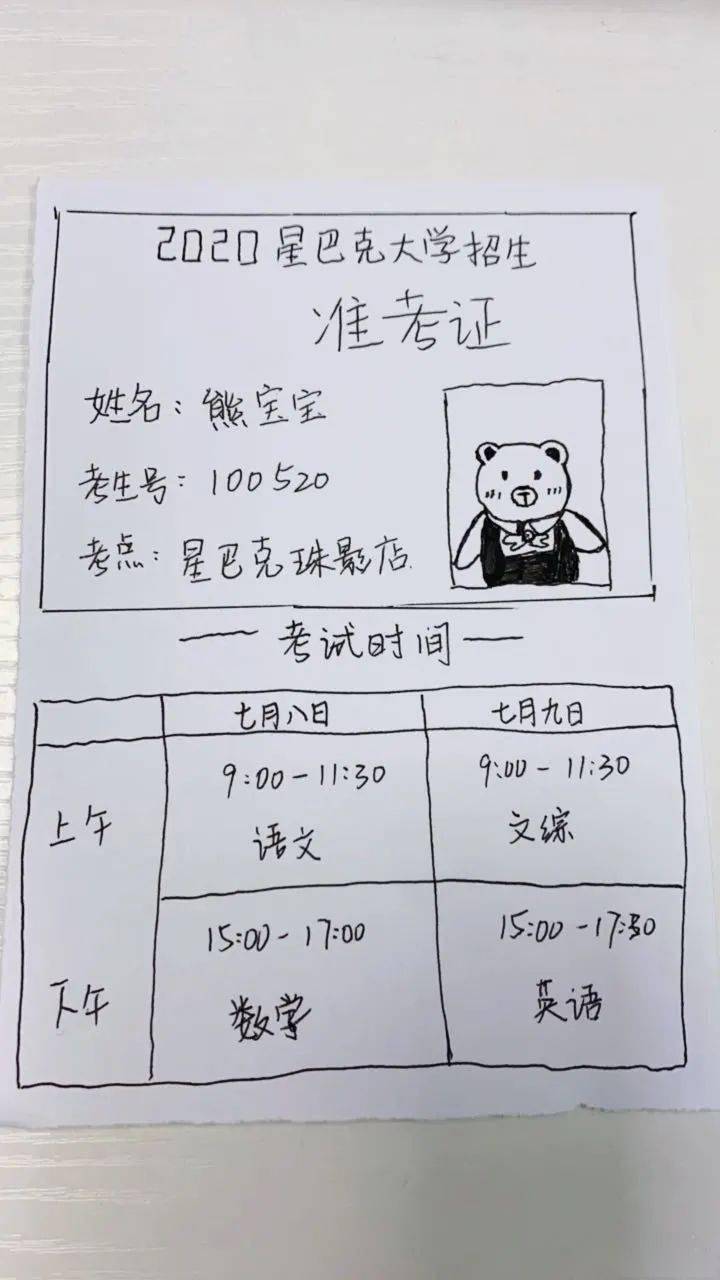 2020星巴克大学招生
准考证
姓名：熊宝宝
考生号：100520
考点：星巴克珠影店.
考试时间
七月八日 七月九日
上午 9:00-11:30 9:00-11:30
语文 文综
下午 15:00-17:00 15:00-17:30
数学 英语